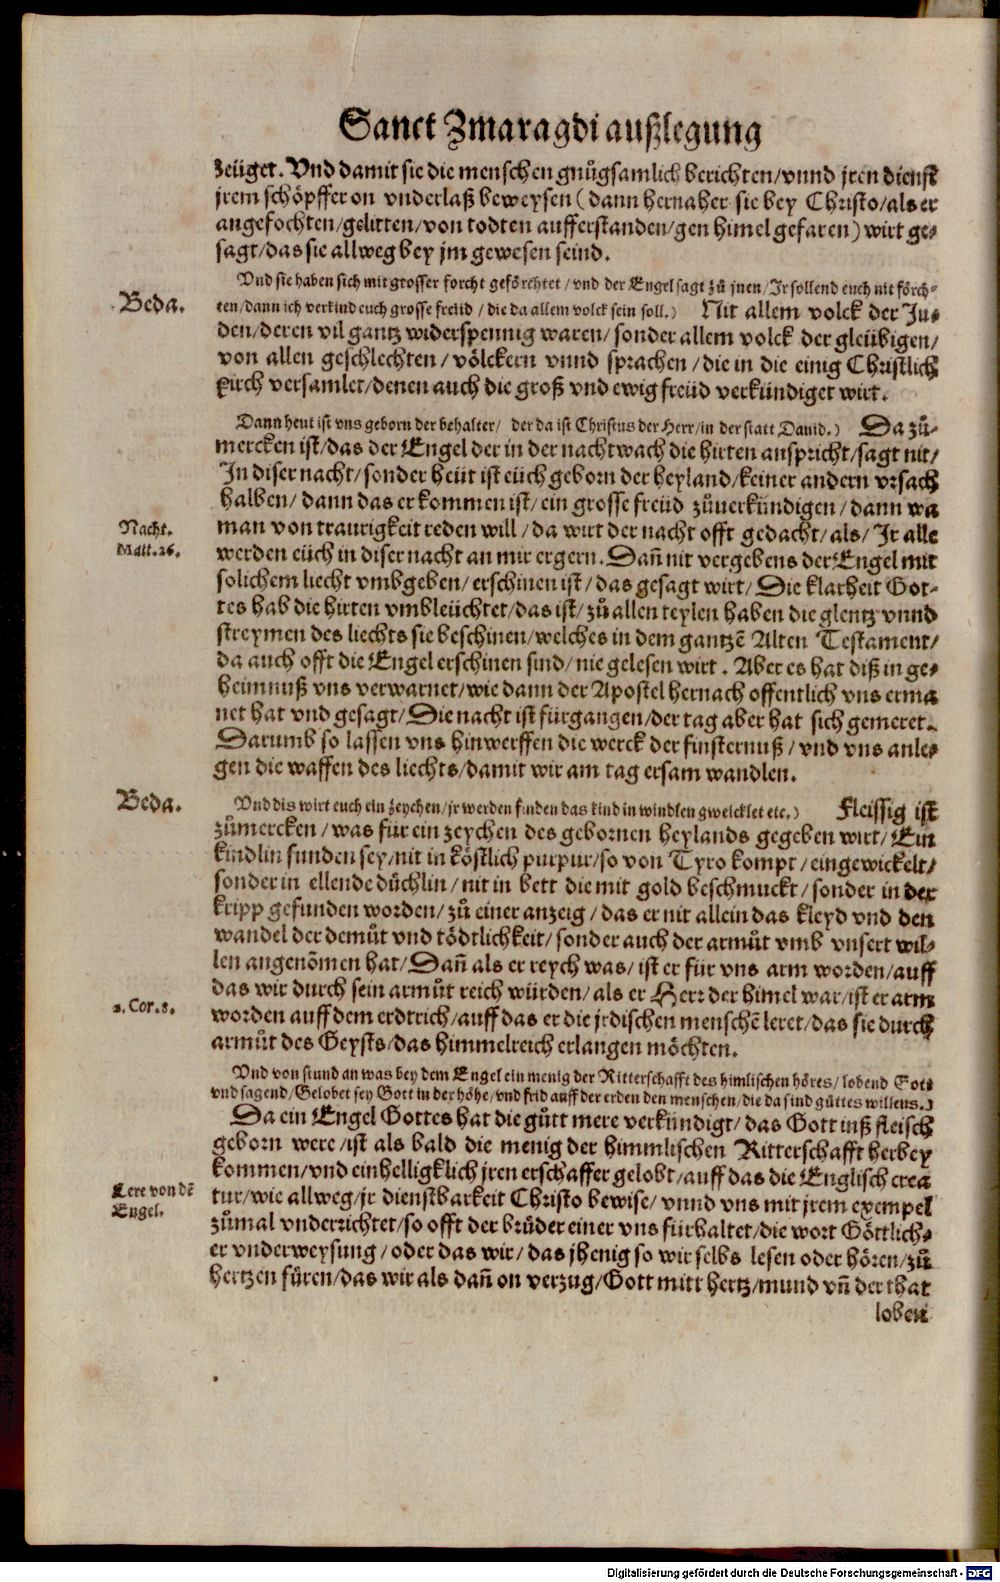 Sanct Zmaragdi außlegung
zeüget. Vnd damit sie die menschen gnůgsamlich berichten/vnnd jren dienst
jrem schöpffer on vnderlaß beweysen (dann hernaher sie bey Christo/als er
angefochten/gelitten/von todten aufferstanden/gen himel gefaren) wirt ge⸗
sagt/das sie allweg bey jm gewesen seind.
Vnd sie haben sich mit grosser forcht geförchtet/vnd der Engel sagt zů jnen/Ir sollend euch nit förch⸗
Beda.
ten/dann ich verkind euch grosse freüd/die da allem volck sein soll.) Nit allem volck der Ju⸗
den/deren vil gantz widerspennig waren/sonder allem volck der gleübigen/
von allen geschlechten/völckern vnnd sprachen/die in die einig Christlich
kirch versamlet/denen auch die groß vnd ewig freüd verkündiget wirt.
Dann heut ist vns geborn der behalter/ der da ist Christus der Herr/in der statt Dauid.) Da zů⸗
mercken ist/das der Engel der in der nachtwach die hirten anspricht/sagt nit/
In diser nacht/sonder heüt ist eüch geborn der heyland/keiner andern vrsach
halben/dann das er kommen ist/ein grosse freüd zůuerkündigen/dann wa
Nacht.
man von traurigkeit reden will/da wirt der nacht offt gedacht/als/Ir alle
Matt.26.
werden eüch in diser nacht an mir ergern. Dañ nit vergebens der Engel mit
solichem liecht vmbgeben/erschinen ist/das gesagt wirt/Die klarheit Got⸗
tes hab die hirten vmbleüchtet/das ist/zů allen teylen haben die glentz vnnd
streymen des liechts sie beschinen/welches in dem gantzē Alten Testament/
da auch offt die Engel erschinen sind/nie gelesen wirt. Aber es hat diß in ge⸗
heimnuß vns verwarnet/wie dann der Apostel hernach offentlich vns erma
net hat vnd gesagt/Die nacht ist fürgangen/der tag aber hat sich gemeret.
Darumb so lassen vns hinwerffen die werck der finsternuß/vnd vns anle⸗
gen die waffen des liechts/damit wir am tag ersam wandlen.
Beda.
Vnd dis wirt euch ein zeychen/jr werden finden das kind in windlen gweicklet etc.) Fleissig ist
zůmercken/was für ein zeychen des gebornen heylands gegeben wirt/Ein
kindlin funden sey/nit in köstlich purpur/so von Tyro kompt/eingewickelt/
sonder in ellende düchlin/nit in bett die mit gold beschmuckt/sonder in der
kripp gefunden worden/zů einer anzeig/das er nit allein das kleyd vnd den
wandel der demůt vnd tödtlichkeit/sonder auch der armůt vmb vnsert wil⸗
len angenōmen hat/Dañ als er reych was/ist er für vns arm worden/auff
das wir durch sein armůt reich würden/als er Herr der himel war/ist er arm
2. Cor. 8.
worden auff dem erdtrich/auff das er die jrdischen menschē leret/das sie durch
armůt des Geysts/das himmelreich erlangen möchten.
Vnd von stund an was bey dem Engel ein menig der Ritterschafft des himlischen höres/lobend Got⸗
vnd sagend/Gelobet sey Gott in der höhe/vnd frid auff der erden den menschen/die da sind gůttes willens.)
Da ein Engel Gottes hat die gůtt mere verkündigt/das Gott inß fleisch
geborn were/ist als bald die menig der himmlischen Ritterschafft herbey
kommen/vnd einhelligklich jren erschaffer gelobt/auff das die Englisch crea
Lere von dē
Engel.
tur/wie allweg/jr dienstbarkeit Christo bewise/vnnd vns mit jrem exempel
zůmal vnderrichtet/so offt der brůder einer vns fürhaltet/die wort Göttlich⸗
er vnderweysung/oder das wir/das jhenig so wir selbs lesen oder hören/zů
hertzen füren/das wir als dañ on verzug/Gott mitt hertz/mund vñ der that
loben
Digitalisierung gefördert durch die Deutsche Forschungsgemeinschaft - DFG